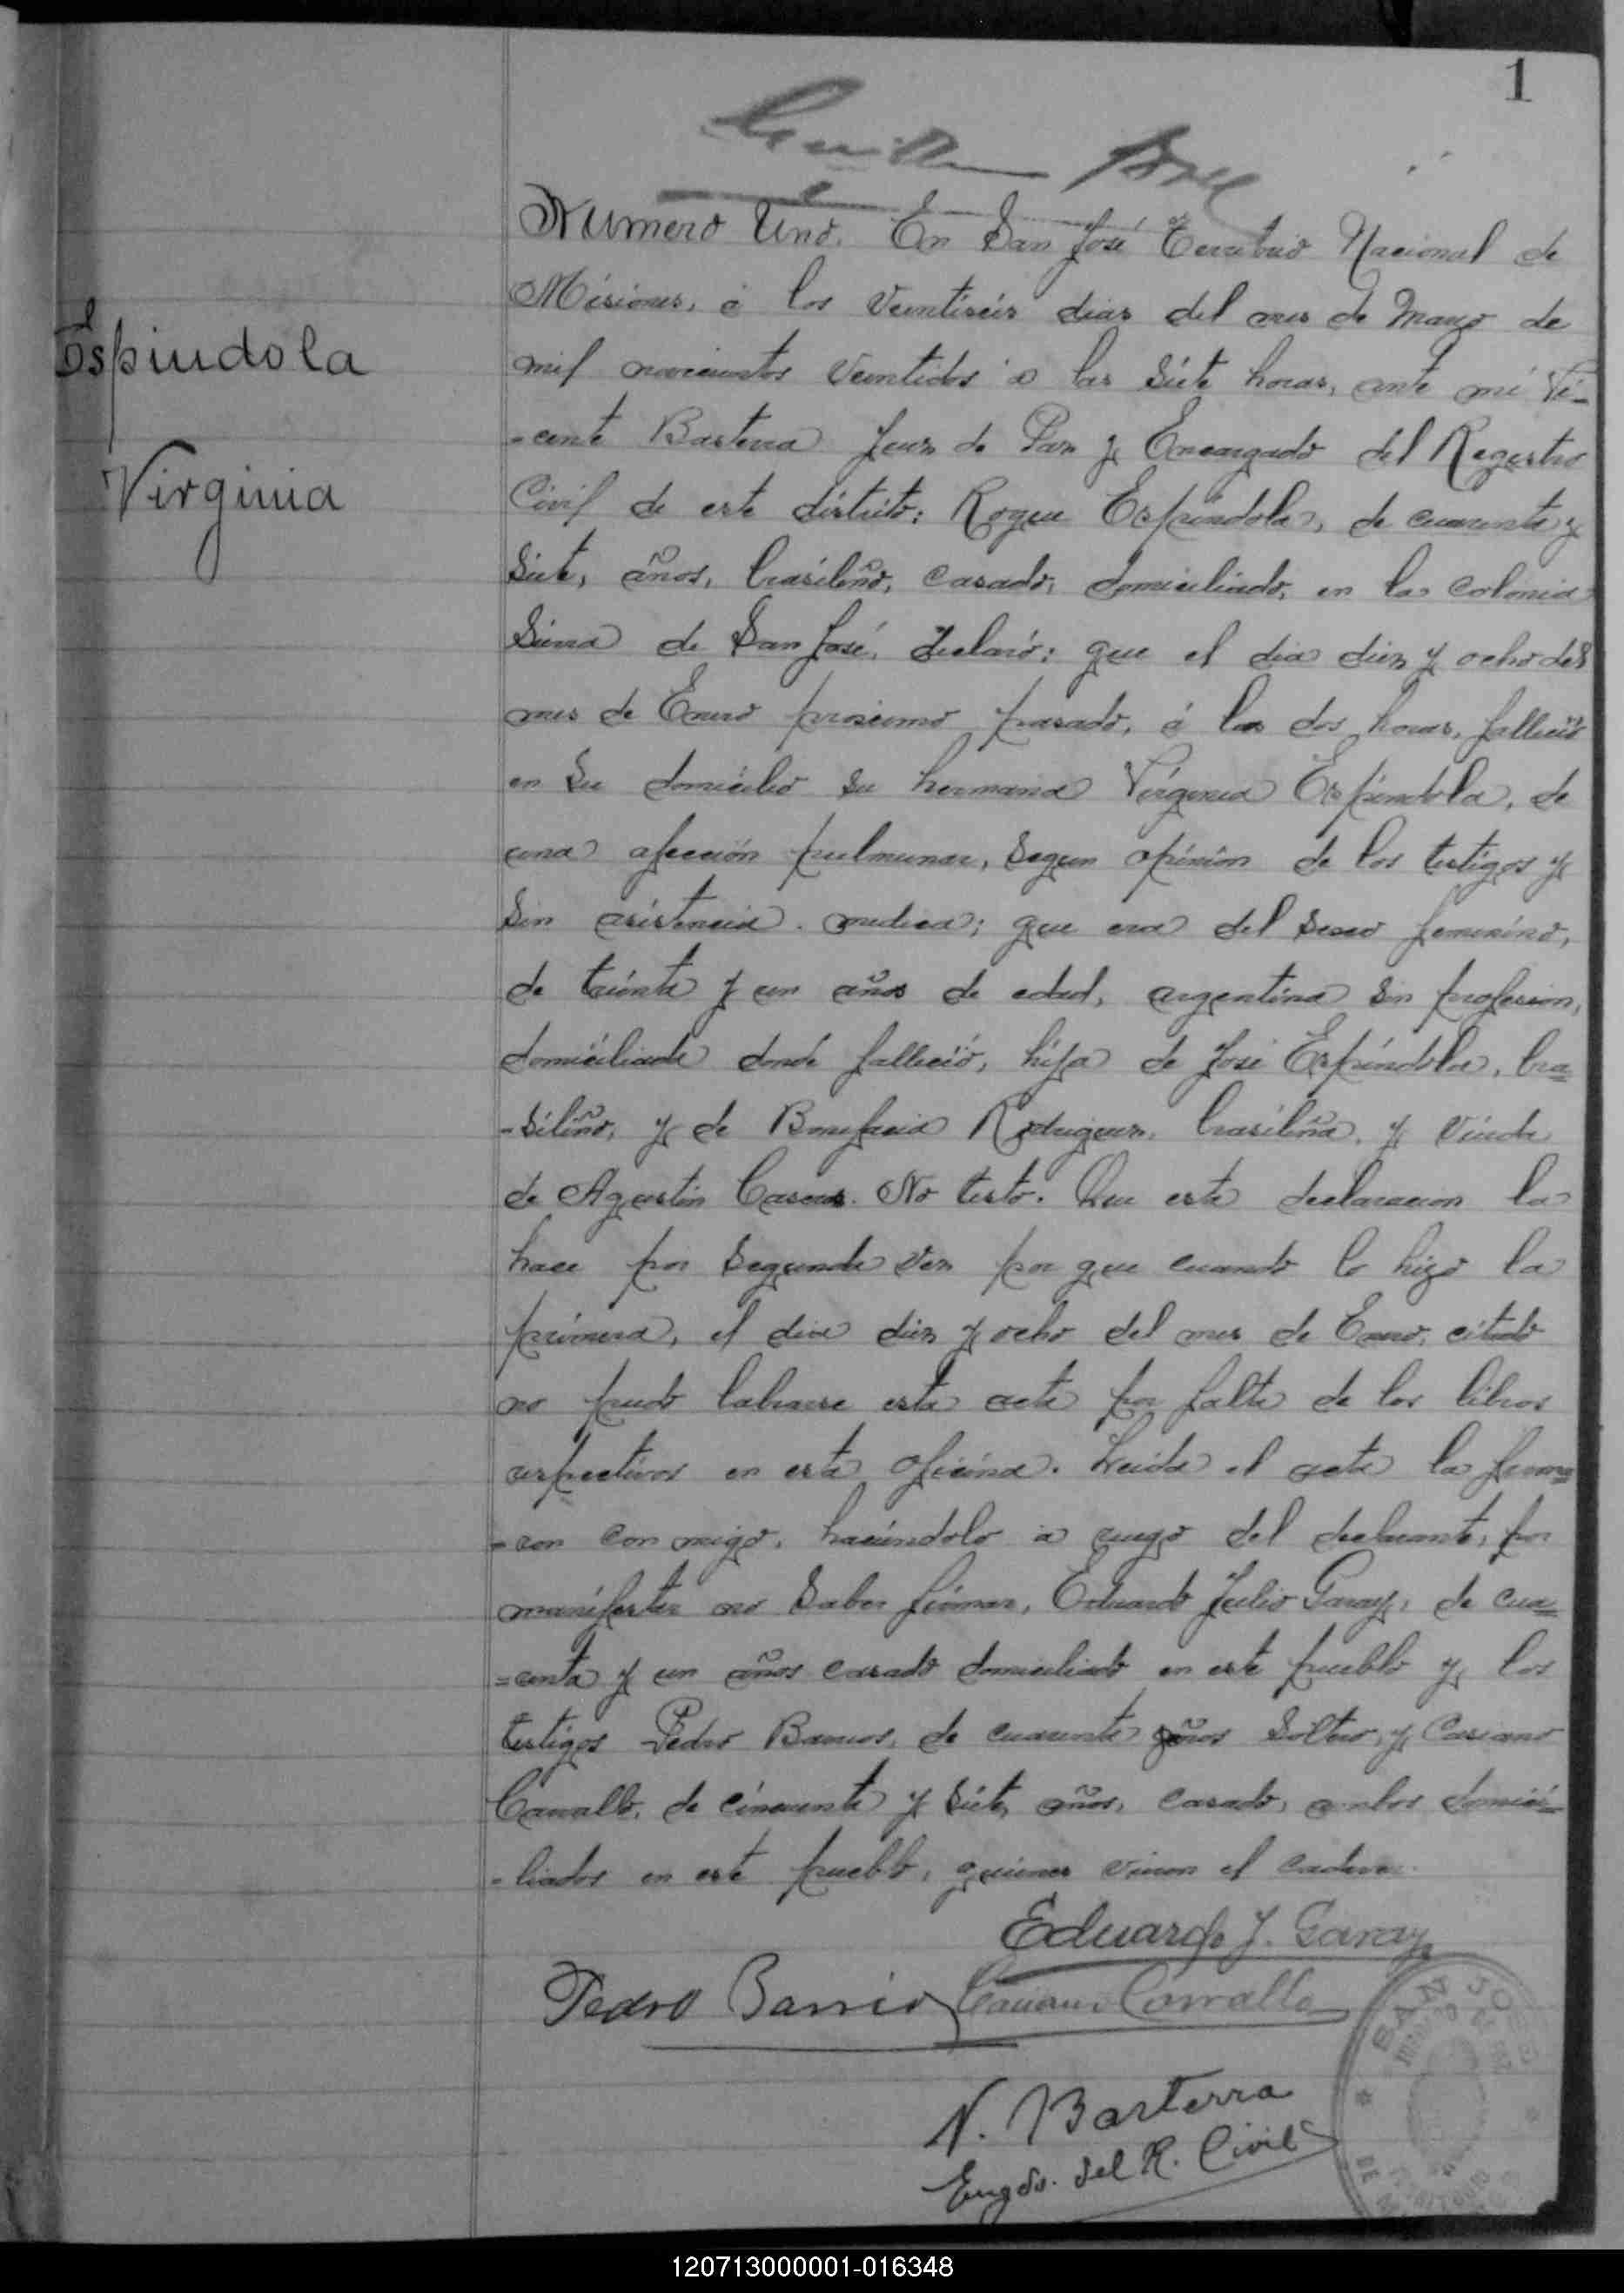 1
Numero Uno. En San José Territorio Nacional de
Misiones, á los veintiseis dias del mes de Marzo de
mil novecientos veintidos á las siete horas, ante mi Vi-
-cente Basterra Juez de Paz y Encargado del Registro
Civil de este distrito: Roque Espíndola, de cuarenta y
siete, años, brasileño, casado, domiciliado, en la colonia
Sierra de San José, declaró: que el dia diez y ocho del
mes de Enero prosimo pasado, á las dos horas, falleció
en su domicilio su hermana Virginia Espíndola, de
una afección pulmunar, segun opinión de los testigos y
sin asistencia medica; que era del sexo femenino,
de treinta y un años de edad, argentina sin profesion,
domiciliada donde falleció, hija de José Espíndola, bra=
-sileño, y de Bonifacia Rodriguez, brasileña, y viuda
de Agustin No testó. Que esta declaracion la
hace por segunda vez por que cuando lo hizo la
primera, el dia diez y ocho del mes de Enero, citado
no pudo labrarse esta acta por falta de los libros
respectivos en esta oficina. Leida el acta la firma=
=ron con migo, haciéndolo á ruego del declarante, por
manifestar no saber firmar, Eduardo Julio Garay, de cua=
=renta y un años casado domiciliado en este pueblo y los
testigos Pedro Barrios, de cuarenta años soltero, y Casiano
Carvallo, de cincuenta y siete, años, casado, ambos domici=
-liados en este pueblo, quienes vieron el cadaver.
Espindola
Virginia
Eduardo J. Garay
Pedro Barrio Casiano Carvallo
V. Basterra
Engdo. del R. Civil
SAN JOSE
120713000001-016348